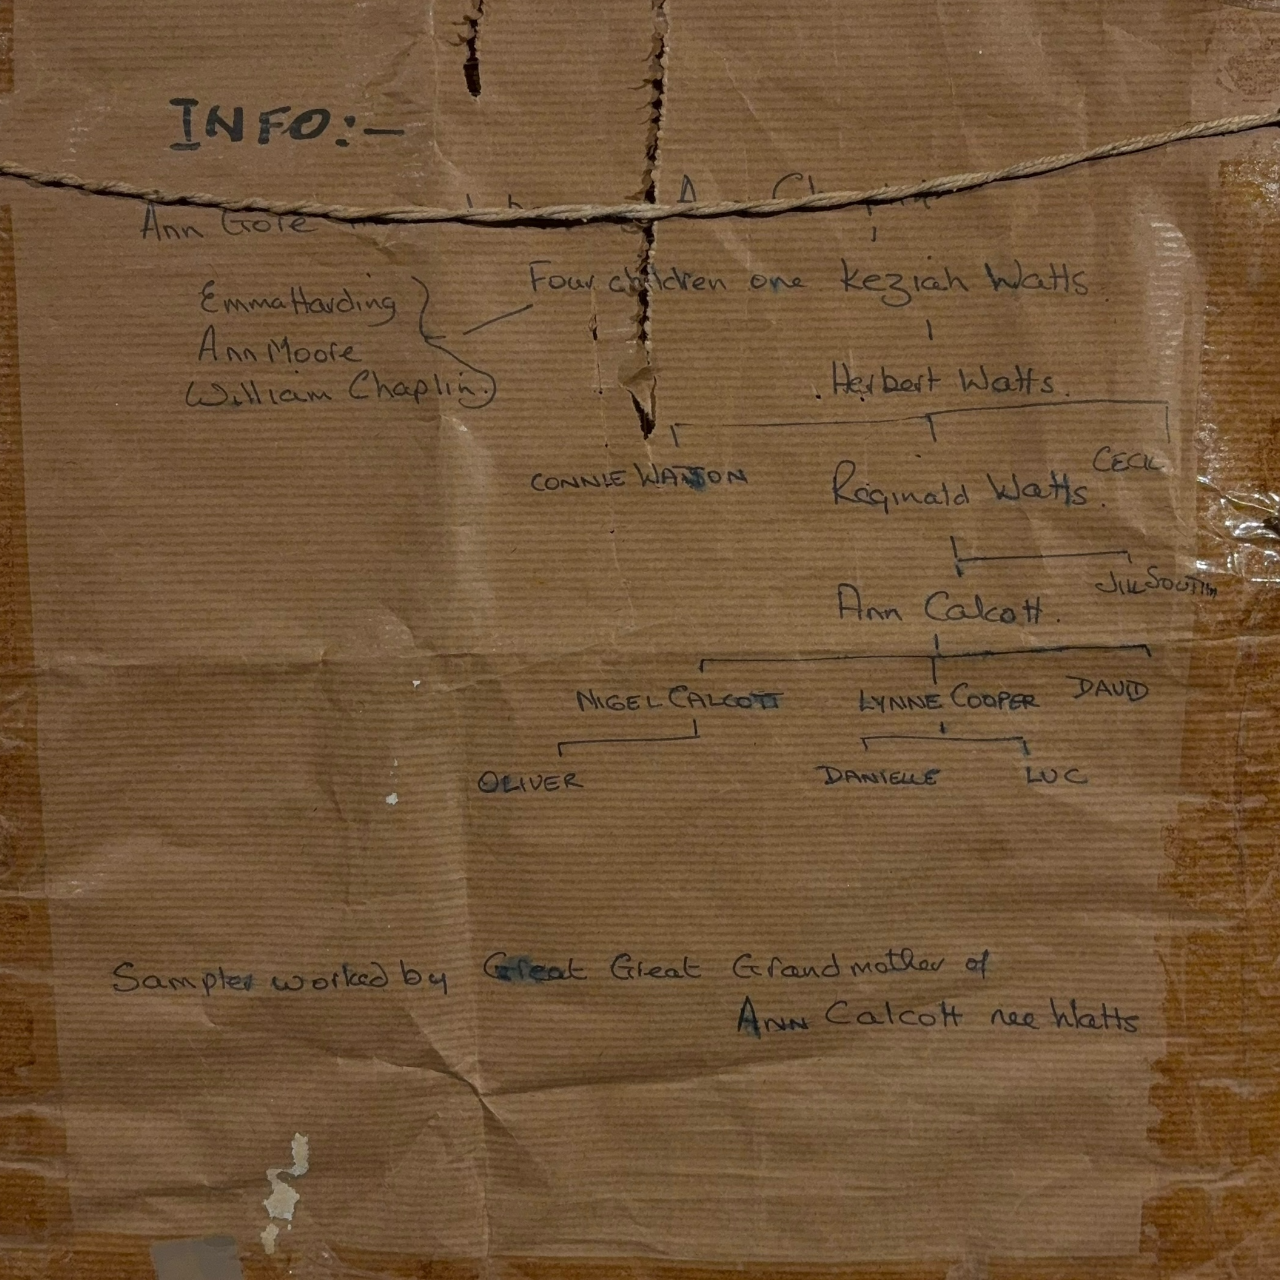 INFO:-
Ann Gore
Four children one Keziah Watts
Emma Harding
Ann Moore
William Chaplin.
Herbert Watts.
CONNIE WATSON
Reginald Watts.
CECIL
Ann Calcott.
JILL
NIGEL CALCOTT LYNNE COOPER DAVID
OLIVER DANIELLE LUC
Sampler worked by Great Great Grandmother of
ANN Calcott nee Watts